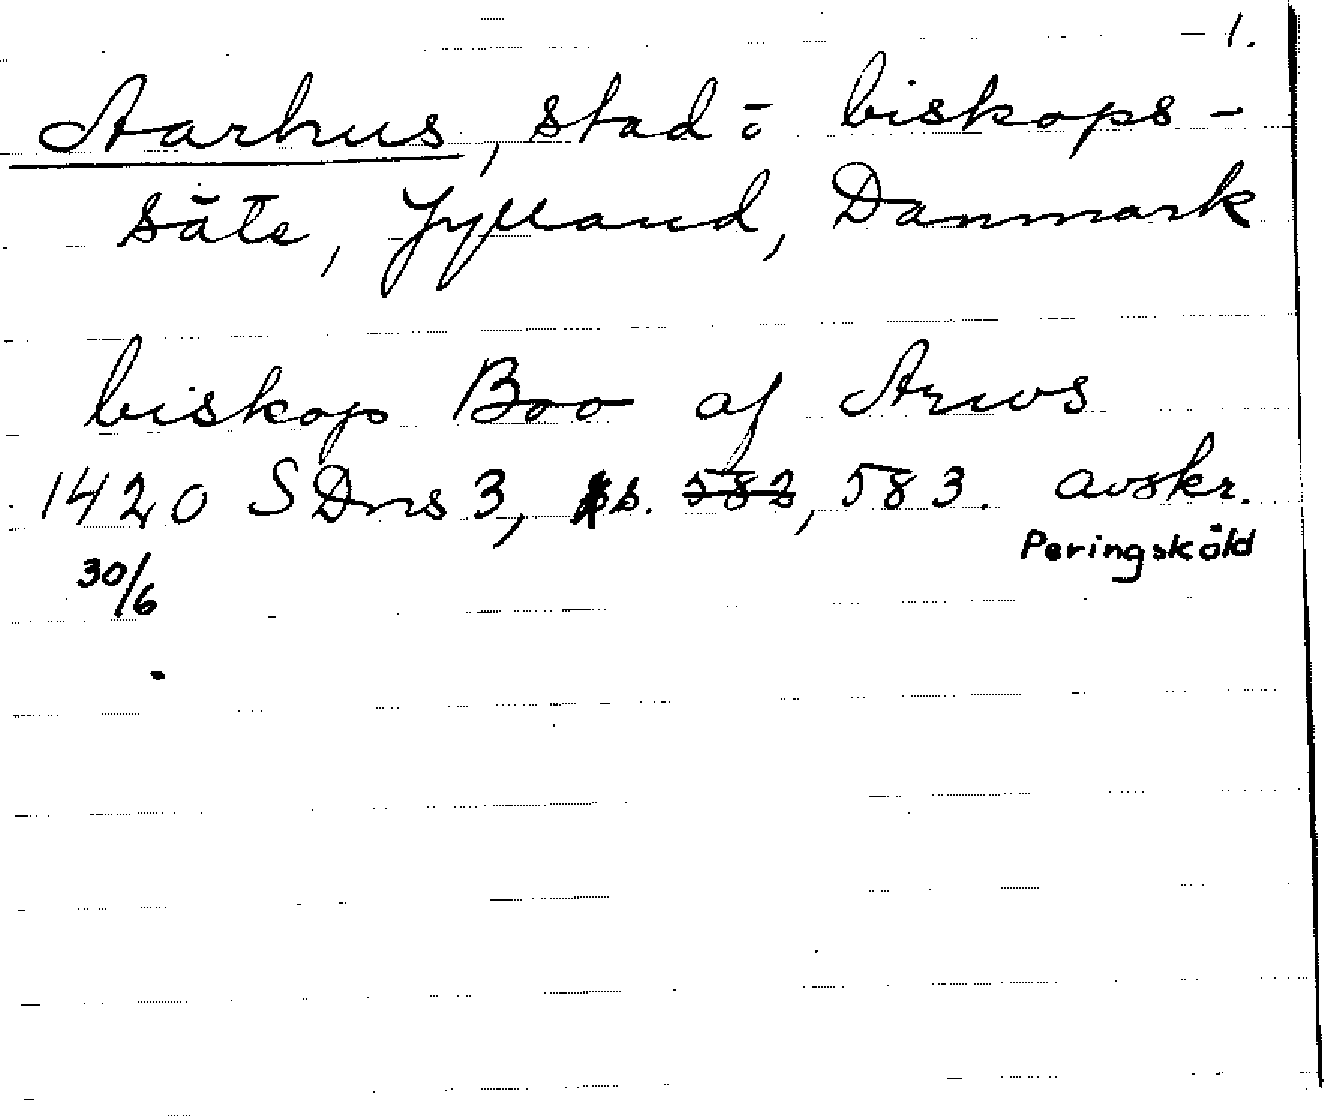 1.
Aarhus, stad o biskops-
säte, Jylland, Danmark
biskop Boo af Arws
1420 SDns 3, s. 582, 583. avskr.
30/6 Peringsköld